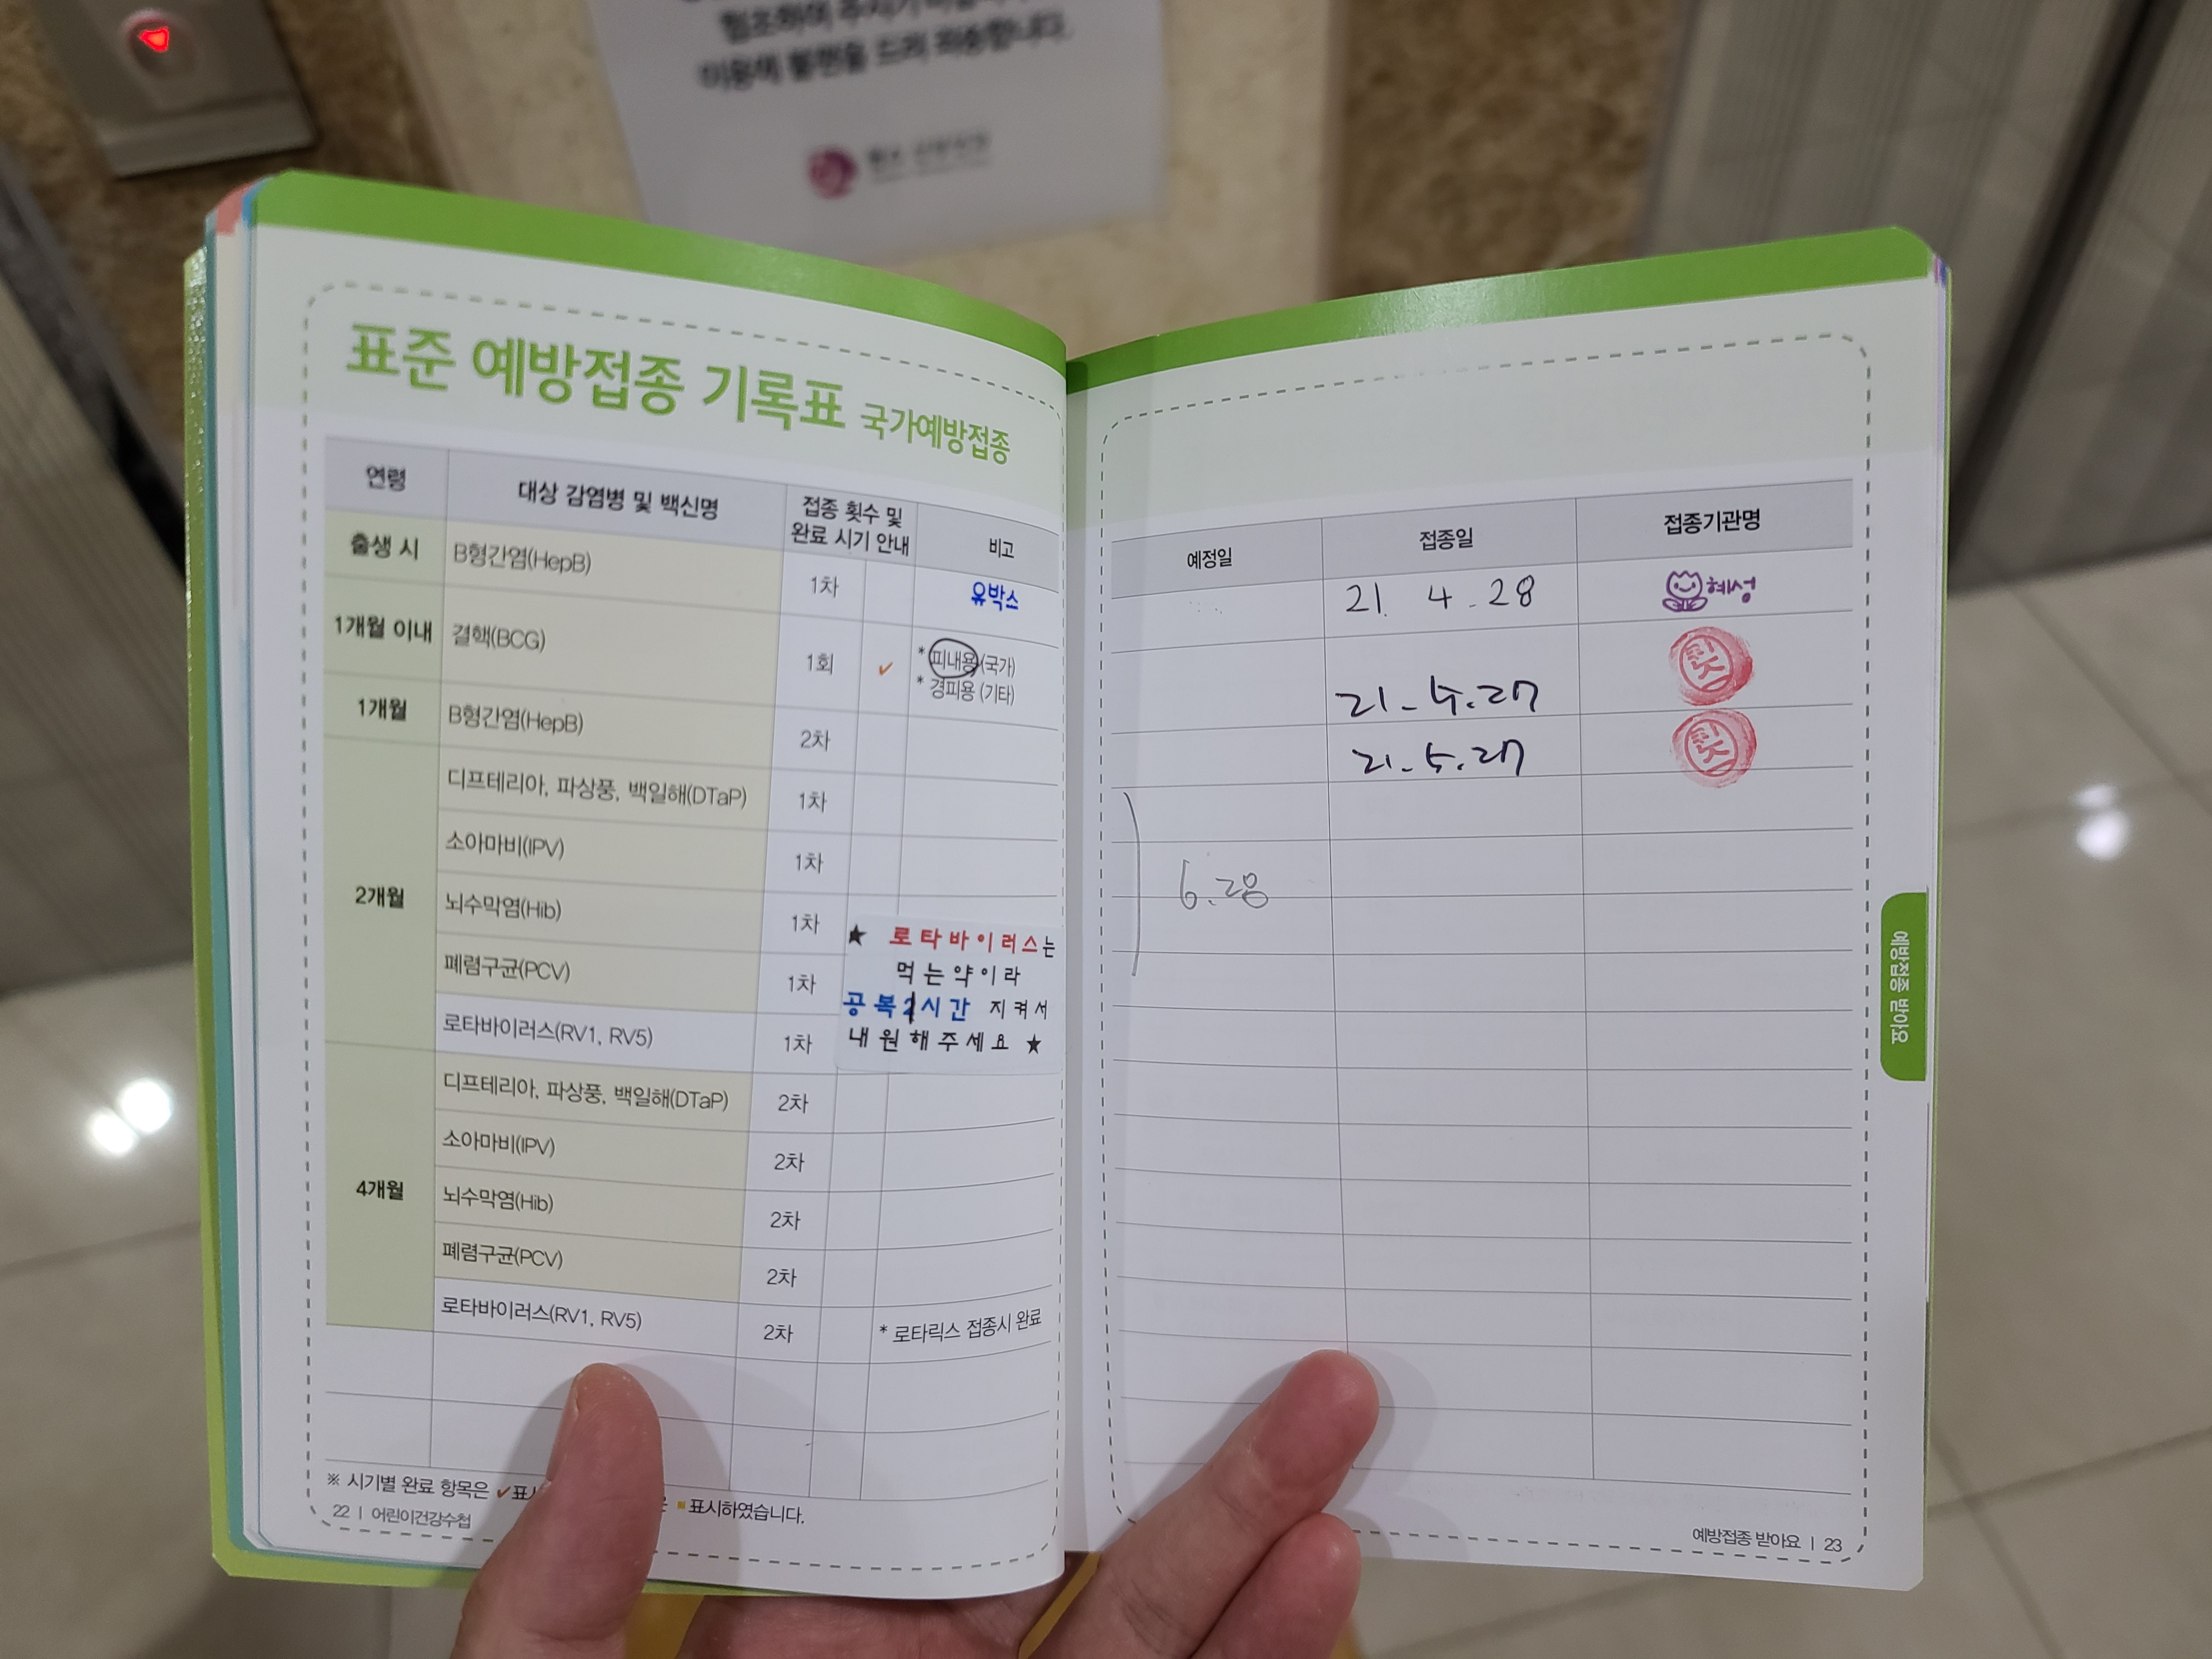 협조하여 주시기
이용에 불편을 드려 죄송합니다.
표준 예방접종 기록표 국가예방접종
연령
대상 감염병 및 백신명
접종 횟수 및
완료 시기 안내
비고
예정일
접종일
접종기관명
출생 시
B형간염(HepB)
1차
유박스
21. 4. 28
혜성
1개월 이내
결핵(BCG)
1회
✓
* 피내용 (국가)
* 경피용 (기타)
21. 5. 27
1개월
B형간염(HepB)
2차
21. 5. 27
2개월
디프테리아, 파상풍, 백일해(DTaP)
1차
소아마비(IPV)
1차
뇌수막염(Hib)
1차
폐렴구균(PCV)
1차
로타바이러스(RV1, RV5)
1차
6. 28
★ 로타바이러스는
먹는약이라
공복 시간 지켜서
내원해주세요 ★
4개월
디프테리아, 파상풍, 백일해(DTaP)
2차
소아마비(IPV)
2차
뇌수막염(Hib)
2차
폐렴구균(PCV)
2차
로타바이러스(RV1, RV5)
2차
* 로타릭스 접종시 완료
※ 시기별 완료 항목은 ✓표시
■ 표시하였습니다.
22 | 어린이건강수첩
예방접종 받아요 | 23
예방접종 받아요